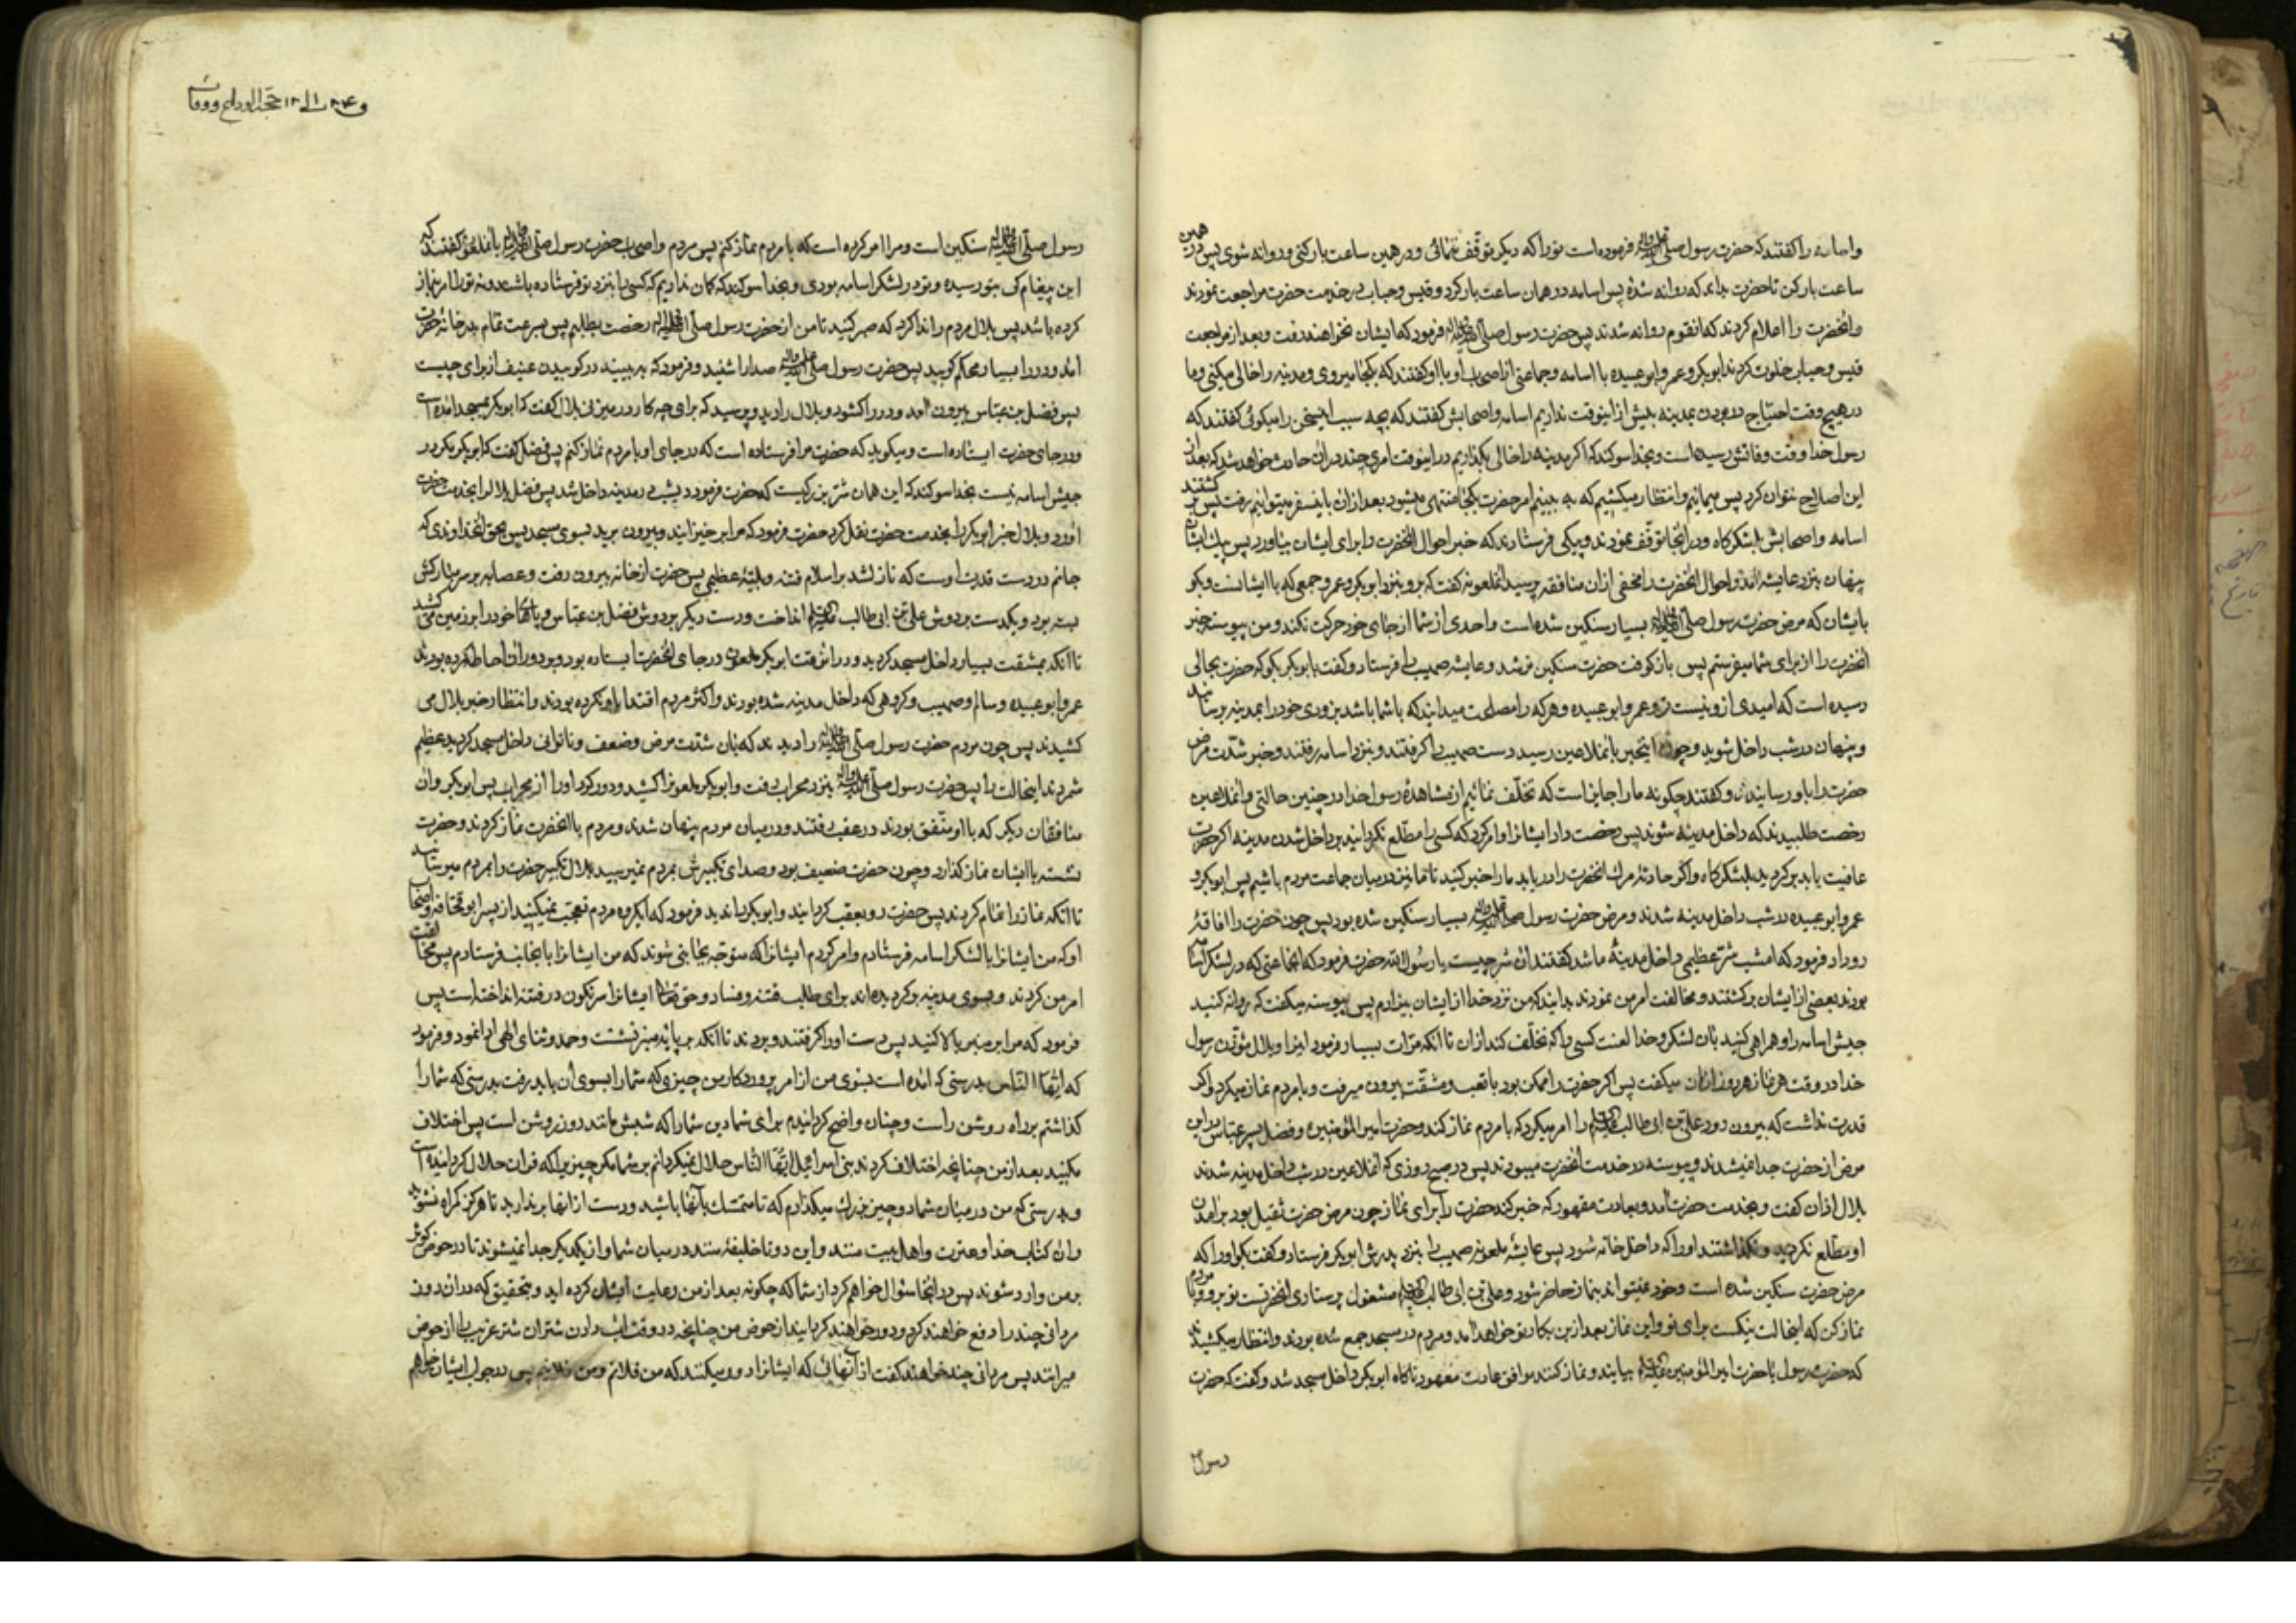 واسامه را گفتند که حضرت رسول صلی الله علیه وآله فرموده است تو را که دیگر توقف ننمائی و در همین ساعت بار کنی و روانه شوی پس در همین
ساعت بار کن تا حضرت بداند که روانه شدۀ پس اسامه در همان ساعت بار کرد و قیس و حباب بخدمت حضرت مراجعت نمودند
وانحضرت را اعلام کردند که انقوم روانه شدند پس حضرت رسول صلی الله علیه وآله فرمود که ایشان نخواهند رفت و بعد از مراجعت
قیس و حباب خلوت کردند ابوبکر و عمر و ابوعبیده با اسامه و جماعتی از اصحاب او با او گفتند که بکجا میروی و مدینه را خالی میکنی و ما
در هیچ وقت احتیاج ببودن مدینه بیش از اینوقت نداریم اسامه واصحابش گفتند که بچه سبب اینسخن را میگوئی گفتند که
رسول خدا وقت وفاتش رسیده است و بخدا سوکند که اکر مدینه را خالی بگذاریم در اینوقت امری چند در ان حادث خواهد شد که بعد از
این اصلاح نتوان کرد پس میمانیم و انتظار میکشیم که به بینیم امر حضرت بکجا منتهی میشود بعد از ان باینسفر میتوانیم رفت پس بر کشتند
اسامه واصحابش بلشکرگاه و در انجا توقف نمودند و پیکی فرستادند که خبر احوال انحضرت را برای ایشان بیاورد پس پیک ایشان
پنهان بنزد عایشه امد و احوال انحضرت را مخفی از ان منافقه پرسید انملعونه گفت که برو بنزد ابوبکر و عمر و جمعی که با ایشانست و بگو
بایشان که مرض حضرت رسول صلی الله علیه وآله بسیار سنکین شده است و احدی از شما از جای خود حرکت نکند و من پیوسته خبر
انحضرت را از برای شما میفرستم پس باز کوفت حضرت سنکین تر شد و عایشه صهیب را فرستاد و گفت با ابوبکر بگو که حضرت بحالی
رسیده است که امیدی از او نیست تو و عمر و ابوعبیده و هر که را مصلحت میدانید که با شما باشد بزودی خود را بمدینه برسانید
و پنهان در شب داخل شوید و چون اینخبر بانملاعین رسید دست صهیب را گرفتند و بنزد اسامه رفتند و خبر شدت مرض
حضرت را باو رسانیدند و گفتند چکونه ما را جایز است که تخلف نمائیم از مشاهدۀ رسول خدا در چنین حالتی و انملاعین
رخصت طلبیدند که داخل مدینه شوند پس رخصت داد ایشانرا و امر کرد که کسی را مطلع نکردانید بر داخل شدن مدینه اکر حضرت
عافیت یابد بر کردید بلشکرگاه و اکر حادثۀ مرک انحضرت را در یابد ما را خبر کنید تا ما نیز در میان جماعت مردم باشیم پس ابوبکر و
عمر و ابوعبیده در شب داخل مدینه شدند و مرض حضرت رسول صلی الله علیه وآله بسیار سنکین شده بود پس چون حضرت را افاقۀ
روداد فرمود که امشب شر عظیمی داخل مدینۀ ما شد گفتند ان شر چیست یا رسول الله حضرت فرمود که انجماعتی که در لشکر اسامه
بودند بعضی از ایشان بر کشتند و مخالفت امر من نمودند بدانید که من نزد خدا از ایشان بیزارم پس پیوسته میگفت که روانه کنید
جیش اسامه را و همراهی کنید بان لشکر و خدا لعنت کند کسی را که تخلف کند از ان تا انکه مرات بسیار فرمود اینرا و بلال مؤذن رسول
خدا در وقت هر نماز هر روز اذان میگفت پس اکر حضرت را ممکن بود با تعب و مشقت بیرون میرفت و با مردم نماز میکرد و اکر
قدرت نداشت که بیرون رود علی بن ابی طالب علیه السلام را امر میکرد که با مردم نماز کند و حضرت امیر المؤمنین و فضل پسر عباس در این
مرض از حضرت جدا نمیشدند و پیوسته در خدمت انحضرت میبودند پس در صبح روزی که انملاعین در شب داخل مدینه شدند
بلال اذان گفت و بخدمت حضرت امد و بعادت معهود که خبر کند حضرت را برای نماز چون مرض حضرت ثقیل بود بر امدن
او مطلع نکردید و نکذاشتند او را که داخل خانه شود پس عایشۀ ملعونه صهیب را بنزد پدرش ابوبکر فرستاد و گفت بگو او را که
مرض حضرت سنکین شده است و خود نمیتواند بنماز حاضر شود و علی بن ابی طالب علیه السلام مشغول پرستاری انحضرتست تو برو و با مردم
نماز کن که اینحالت نیکست برای تو و این نماز بعد از این بکار تو خواهد امد و مردم در مسجد جمع شده بودند و انتظار میکشیدند
که حضرت رسول یا حضرت امیر المؤمنین علیه السلام بیایند و نماز کنند موافق عادت معهود ناکاه ابوبکر داخل مسجد شد و گفت که حضرت
رسول
حجة الوداع و وفات
رسول صلی الله علیه وآله سنکین است و مرا امر کرده است که با مردم نماز کنم پس مردم و اصحاب حضرت رسول صلی الله علیه وآله بانملعون گفتند که
این پیغام کی بتو رسیده و تو در لشکر اسامه بودی و بخدا سوکند که کمان نداریم که کسی را بنزد تو فرستاده باشد و نه تو را امر بنماز
کرده باشد پس بلال مردم را ندا کرد که صبر کنید تا من از حضرت رسول صلی الله علیه وآله رخصت بطلبم پس بسرعت تمام بدر خانۀ حضرت
امد و در را بسیار محکم کوبید پس حضرت رسول صلی الله علیه وآله صدا را شنید و فرمود که به بینید در کوبیدن عنیف از برای چیست
پس فضل بن عباس بیرون امد و در را کشود و بلال را دید و پرسید که برای چه کار در میزنی بلال گفت که ابوبکر بمسجد امده است
و در جای حضرت ایستاده است و میگوید که حضرت مرا فرستاده است که در جای او با مردم نماز کنم پس فضل گفت که ابوبکر مکر در
جیش اسامه نیست بخدا سوکند که این همان شر بزرکیست که حضرت فرمود دیشب در مدینه داخل شد پس فضل بلال را بخدمت حضرت
اورد و بلال خبر ابوبکر را بخدمت حضرت نقل کرد حضرت فرمود که مرا بر خیزانید و بیرون برید بسوی مسجد پس بحق انخداوندی که
جانم در دست قدرت اوست که نازل شد بر اسلام فتنه و بلیۀ عظیمی پس حضرت از خانه بیرون رفت و عصابه بر سر مبارکش
بسته بود و یکدست بر دوش علی بن ابی طالب علیه السلام انداخت و دست دیکر بر دوش فضل بن عباس و پاهای خود را بر زمین می کشید
تا انکه بمشقت بسیار داخل مسجد کردید و در انوقت ابوبکر ملعون در جای انحضرت ایستاده بود و بر دور او احاطه کرده بودند
عمر و ابوعبیده و سالم و صهیب و کروهی که داخل مدینه شده بودند و اکثر مردم اقتدا باو نکرده بودند و انتظار خبر بلال می
کشیدند پس چون مردم حضرت رسول صلی الله علیه وآله را دیدند که بان شدت مرض و ضعف و ناتوانی داخل مسجد کردید عظیم
شمردند اینحالت را پس حضرت رسول صلی الله علیه وآله بنزد محراب رفت و ابوبکر ملعونرا کشید و دور کرد او را از محراب پس ابوبکر و ان
منافقان دیکر که با او متفق بودند در عقب رفتند و در میان مردم پنهان شدند و مردم با انحضرت نماز کردند و حضرت
نشسته با ایشان نماز گذارد و چون حضرت ضعیف بود و صدای تکبیرش بمردم نمیرسید بلال تکبیر حضرت را بمردم میرسانید
تا انکه نماز را تمام کردند پس حضرت رو بعقب کردانید و ابوبکر را ندید فرمود که ایگروه مردم تعجب نمیکنید از پسر ابو قحافه و اصحاب
او که من ایشانرا با لشکر اسامه فرستادم و امر کردم ایشانرا که متوجه بجانبی شوند که من ایشانرا بانجانب فرستادم پس مخالفت
امر من کردند و بسوی مدینه بر کردیده اند برای طلب فتنه و فساد و حق تعالی ایشانرا سرنکون در فتنه انداخته است پس
فرمود که مرا بر منبر بالا کنید پس دست او را گرفتند و بردند تا انکه بر پایۀ منبر نشست و حمد و ثنای الهی ادا نمود و فرمود
که ایها الناس بدرستی که امده است بسوی من از امر پروردکار من چیزی که شما را بسوی آن باید رفت بدرستی که شما را
گذاشتم بر راه روشن راست و چنان واضح کردانیدم برای شما دین شما را که شبش مانند روز روشن است پس اختلاف
مکنید بعد از من چنانچه اختلاف کردند بنی اسرائیل ایها الناس حلال نمیکردانم بر شما مکر چیزیرا که قران حلال کردانیده است
و بدرستی که من در میان شما دو چیز بزرک میکذارم که تا متمسک بآنها باشید و دست از انها بر ندارید تا هرکز کمراه نشوید
وان کتاب خدا و عترت و اهل بیت منند و این دو تا خلیفۀ منند در میان شما و از یکدیکر جدا نمیشوند تا در حوض کوثر
بر من وارد شوند پس در انجا سؤال خواهم کرد از شما که چکونه بعد از من رعایت ایشان کرده اید و بتحقیق که در ان روز
مردانی چند را دفع خواهند کرد و دور خواهند کردانید از حوض من چنانچه در وقت اب دادن شتران شتر غریب را از حوض
میرانند پس مردانی چند خواهند گفت از آنهائی که ایشانرا دور میکنند که من فلانم و من فلانم پس در جواب ایشان خواهم